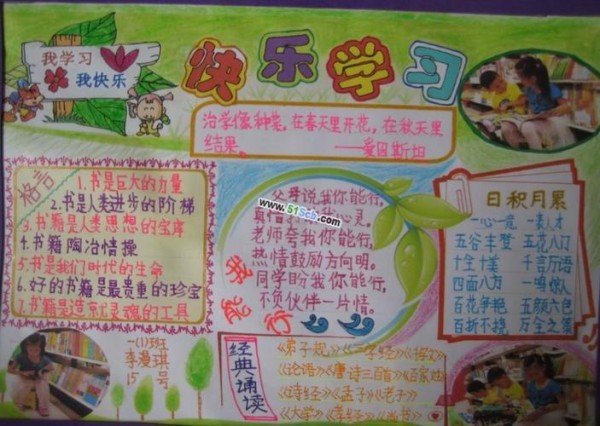 我学习
我快乐
快乐学习
治学像种菜，在春天里开花，在秋天里
结果。 ——爱因斯坦
格言
1.书是巨大的力量
2.书是人类进步的阶梯
3.书籍是人类思想的宝库
4.书籍陶冶情操
5.书是我们时代的生命
6.好的书籍是最贵重的珍宝
7.书籍是造就灵魂的工具
父母说我你能行，
老师夸我你能行，
热情鼓励方向明。
同学盼我你能行，
不负伙伴一片情。
我能行
www.51Scb.com
日积月累
一心一意 一表人才
五谷丰登 五花八门
十全十美 千言万语
四面八方 一鸣惊人
百花争艳 五颜六色
百折不挠 万全之策
一(1)班
李漫琪
15号
经典诵读
《弟子规》《三字经》
《论语》《唐诗三百首》《百家姓
《诗经》《孟子》《老子》
《大学》《孝经》《尚书》